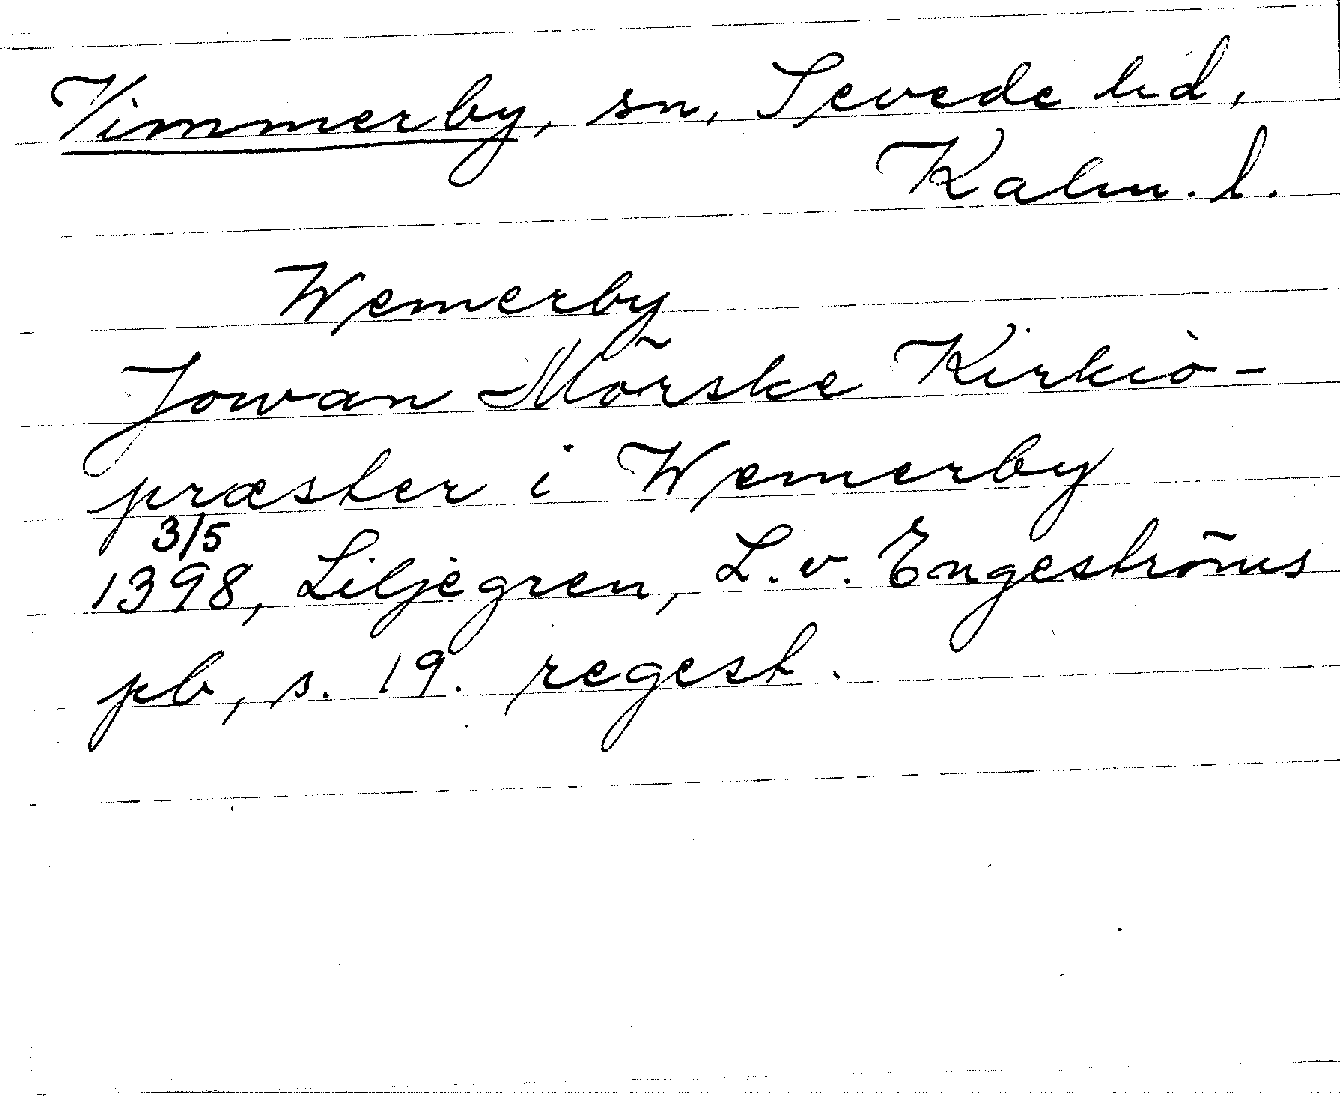 Vimmerby, sn, Sevede hd,
Kalm. l.
Wemerby
Jowan Mörske Kirkio-
præster i Wemerby
3/5
1398, Liljegren, L. v. Engeströms
pb, s. 19. regest.